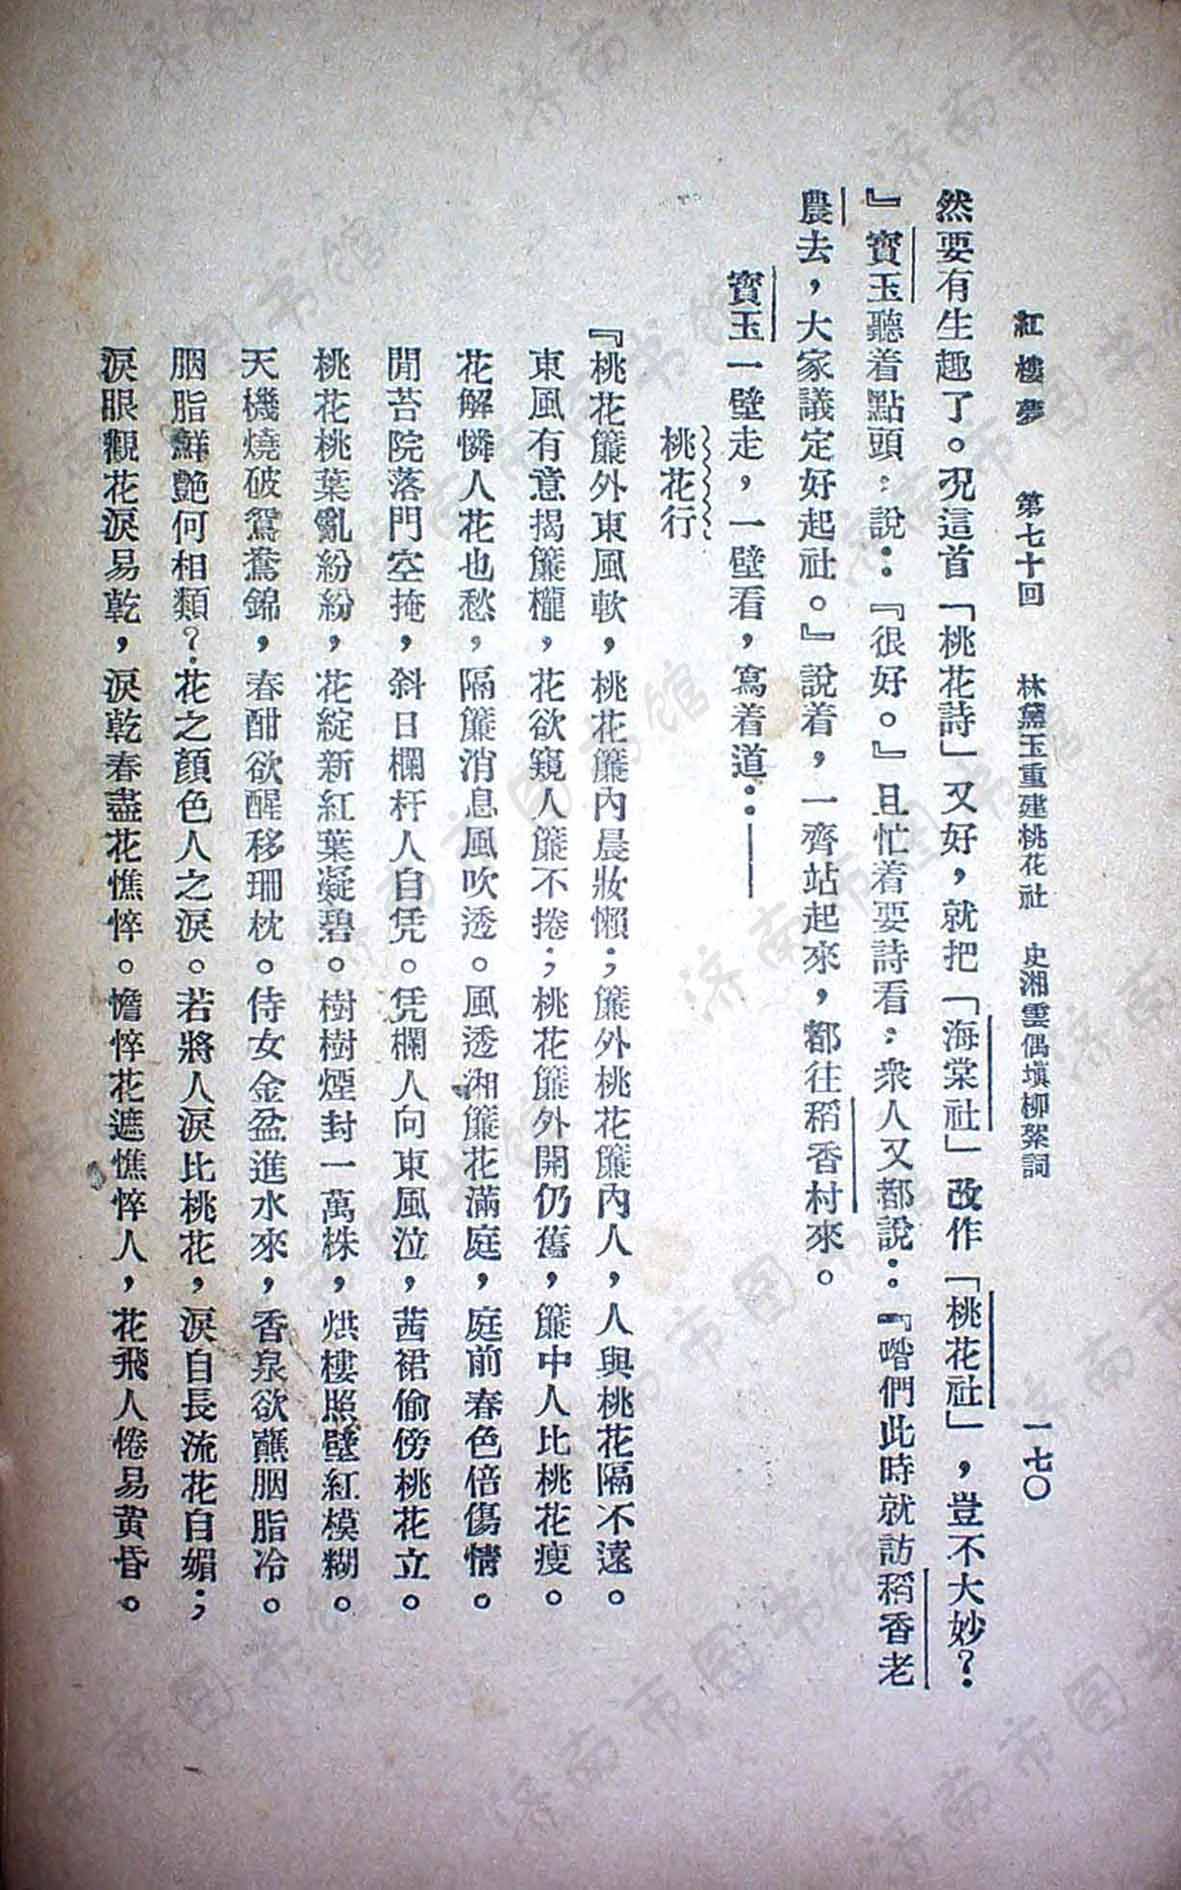 紅樓夢　第七十回　林黛玉重建桃花社　史湘雲偶塡柳絮詞　一七〇
然要有生趣了。况這首「桃花詩」又好，就把「海棠社」改作「桃花社」，豈不大妙？
』寶玉聽着點頭，說：『很好。』且忙着要詩看；衆人又都說：『喒們此時就訪稻香老
農去，大家議定好起社。』說着，一齊站起來，都往稻香村來。
寶玉一壁走，一壁看，寫着道：——
桃花行
『桃花簾外東風軟，桃花簾內晨妝懶；簾外桃花簾內人，人與桃花隔不遠。
東風有意揭簾櫳，花欲窺人簾不捲；桃花簾外開仍舊，簾中人比桃花瘦。
花解憐人花也愁，隔簾消息風吹透。風透湘簾花滿庭，庭前春色倍傷情。
閒苔院落門空掩，斜日欄杆人自凭。凭欄人向東風泣，茜裙偷傍桃花立。
桃花桃葉亂紛紛，花綻新紅葉凝碧。樹樹煙封一萬株，烘樓照壁紅模糊。
天機燒破鴛鴦錦，春酣欲醒移珊枕。侍女金盆進水來，香泉欲蘸胭脂冷。
胭脂鮮艷何相類？花之顏色人之淚。若將人淚比桃花，淚自長流花自媚；
淚眼觀花淚易乾，淚乾春盡花憔悴。憔悴花遮憔悴人，花飛人倦易黄昏。
济南市图书馆